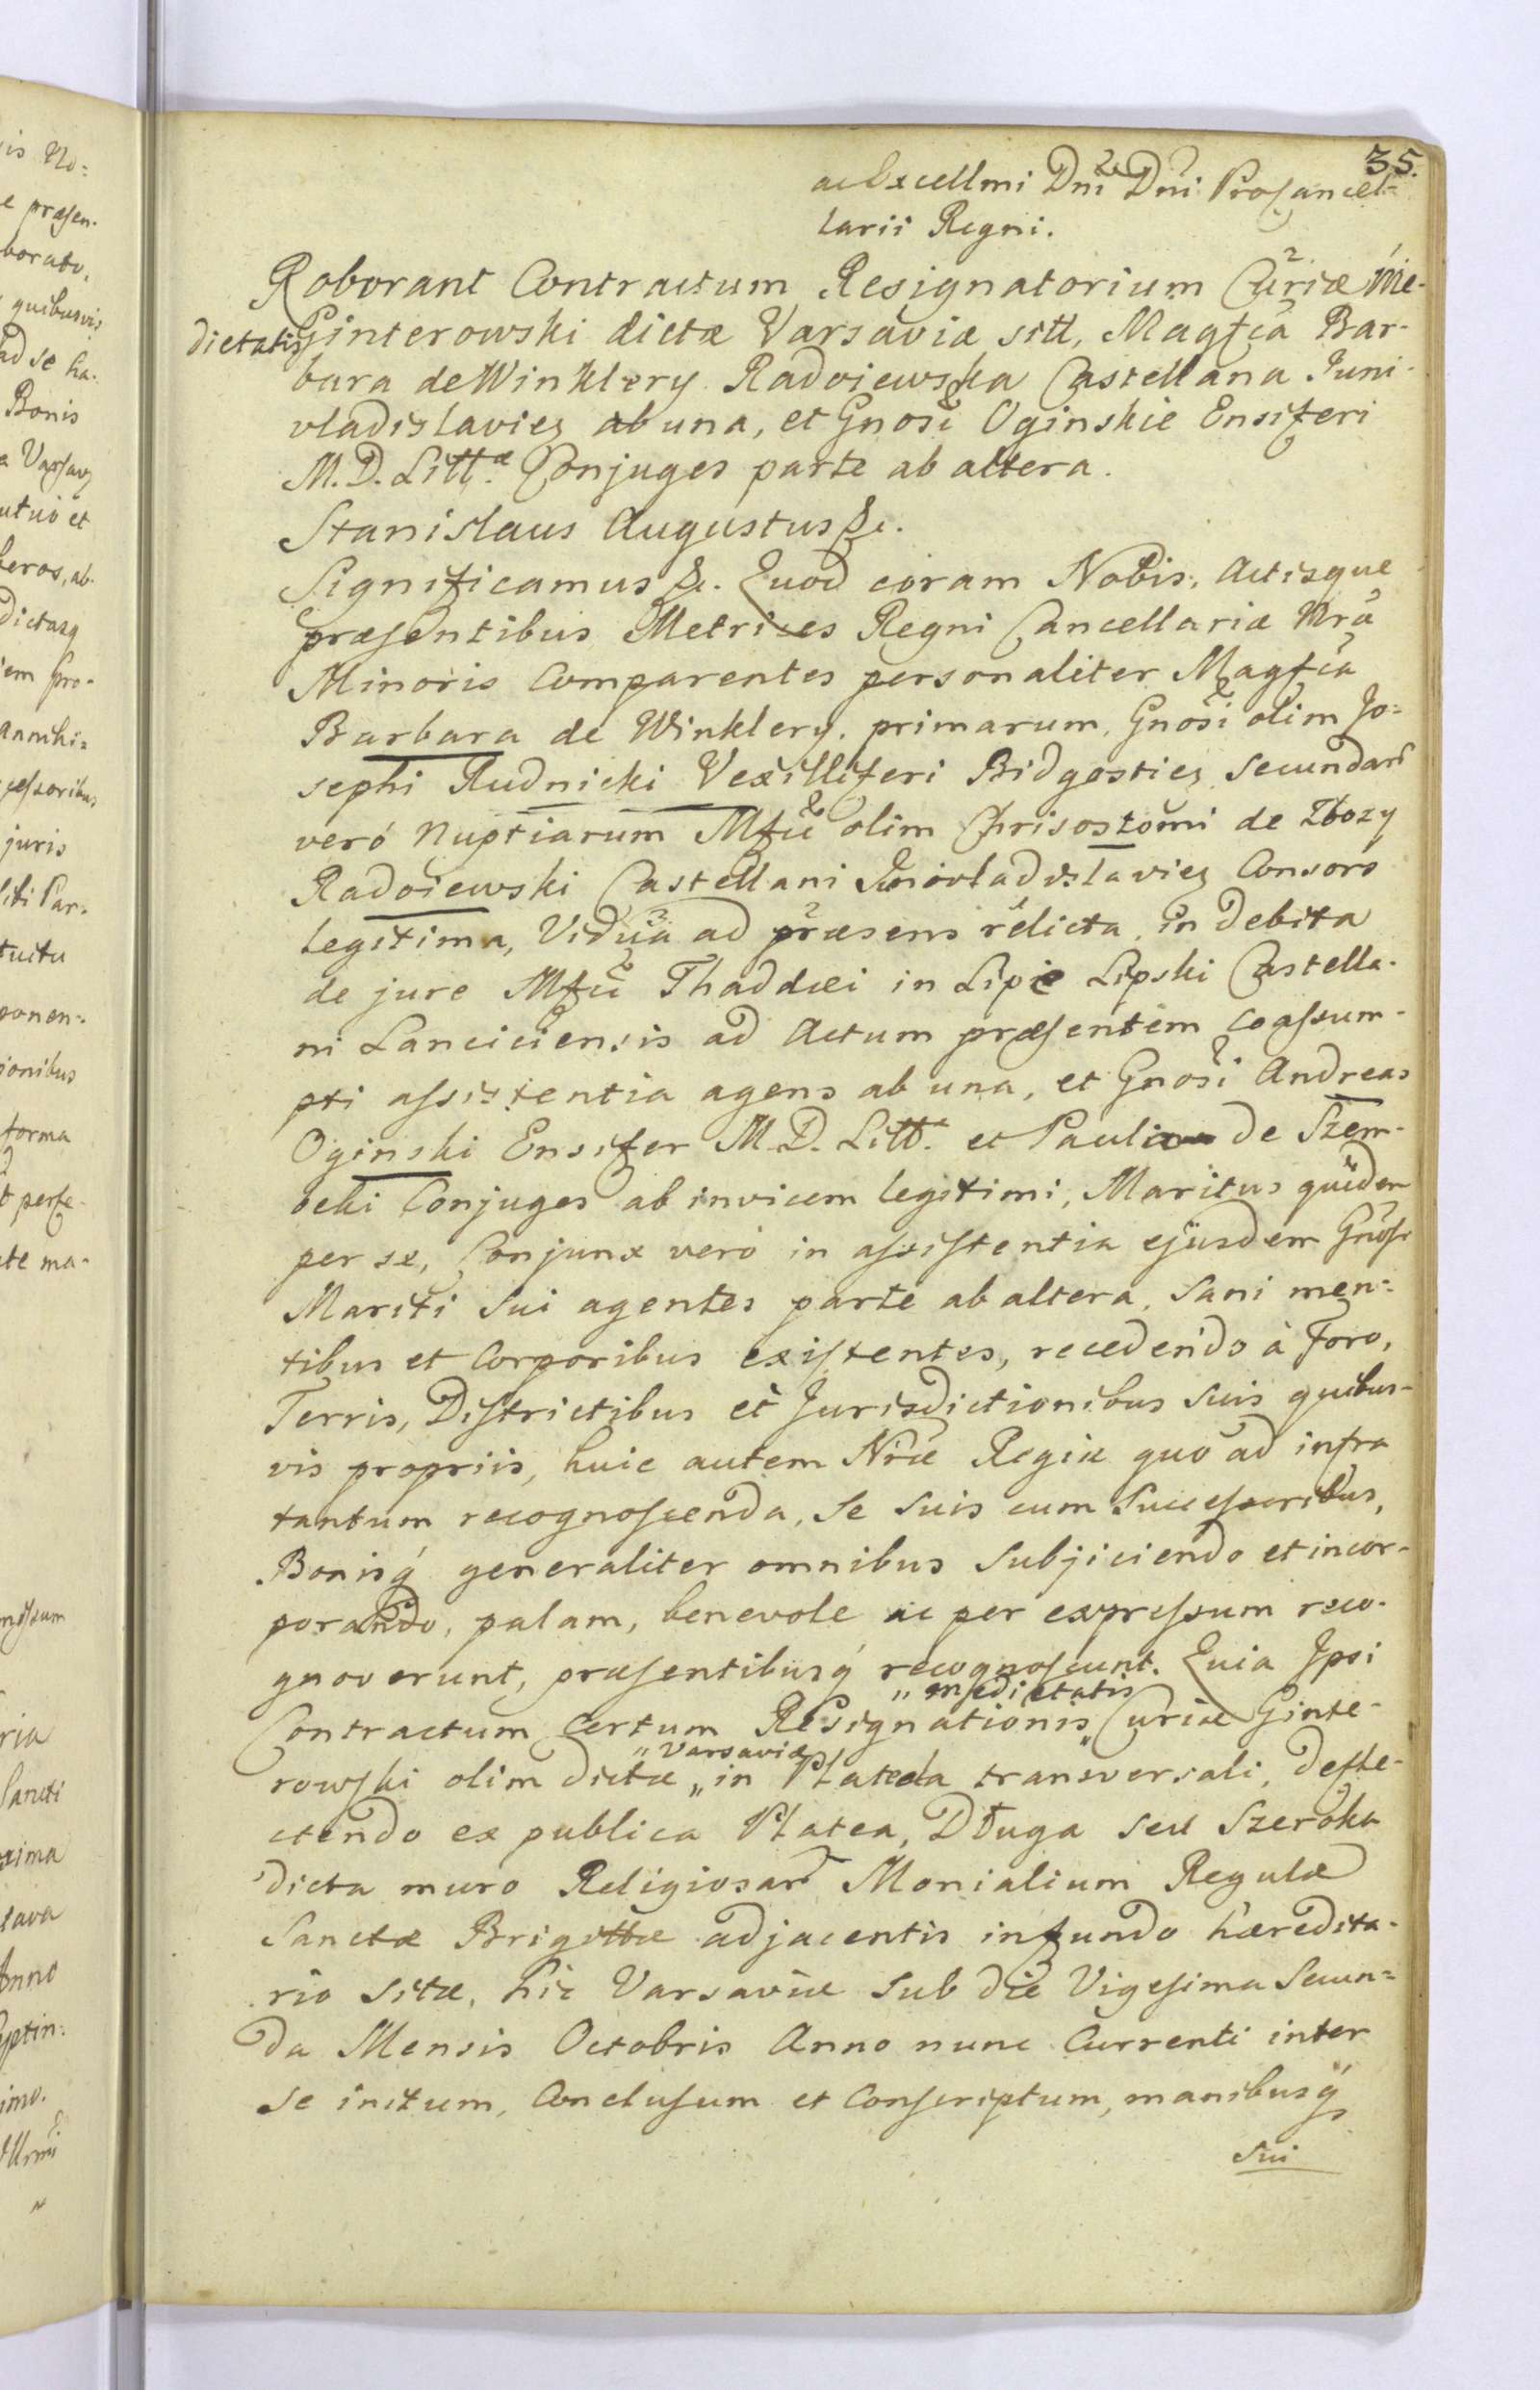 35.
ac Excellmi Dni Dni Procancel=
larii Regni.
Roborant Contractum Resignatorium Curiæ Me-
dictatis Ginterowski dictæ Varsaviæ sitt, Magfca Bar-
bara de Winklery Radoiewska Castellana Juni-
vladislavien ab una, et Gnosi Oginskie Ensiferi
M.D. Litt.æ Conjuges parte ab altera.
Stanislaus Augustus &c.
Significamus &c. Quod coram Nobis, Actisque
præsentibus Metrices Regni Cancellariæ Nræ
Minoris Comparentes personaliter Magfca
Barbara de Winklery, primarum, Gnosi olim Jo=
sephi Rudnicki Vexilliferi Bidgostien, secundarũ
veró Nuptiarum Mfci olim Chrisostomi de Zbozy
Radoiewski Castellani Junovladislavien Consors
legitima, Vidua ad præsens relicta, in debita
de jure Mfci Thaddæi in Lipie Lipski Castella-
ni Lanciciensis ad Actum præsentem coassum-
pti assistentia agens ab una, et Gnosi Andreas
Oginski Ensifer M.D. Litt. et Paulina de Szem-
beki Conjuges ab invicem legitimi, Maritus quidem
per se, Conjunx veró in assistentia ejusdem Gnosi
Mariti sui agentes parte ab altera, sani men=
tibus et Corporibus existentes, recedendo à Foro,
Terris, Districtibus et Jurisdictionibus suis quibus-
vis propriis, huic autem Nræ Regiæ quo ad infra
tantum recognoscenda, se suis cum Successoribus,
Bonisq́ generaliter omnibus subjiciendo et incor-
porando, palam, benevole ac per expressum reco-
gnoverunt, præsentibusq́ recognoscunt. Quia Ipsi
„ medietatis
Contractum certum Resignationis „ Curiæ Ginte-
„ Varsaviæ
rowski olim dictæ „ in Platea transversali, defle-
ctendo ex publica Platea, Długa seu Szeroka
dicta muro Religiosarũ Monialium Regulæ
Sanctæ Brigittæ adjacentis in fundo hæredita-
rio sitæ, hic Varsaviæ sub die Vigesima Secun=
da Mensis Octobris Anno nunc Currenti inter
se initum, Conclusum et Conscriptum, manibusq́
sui